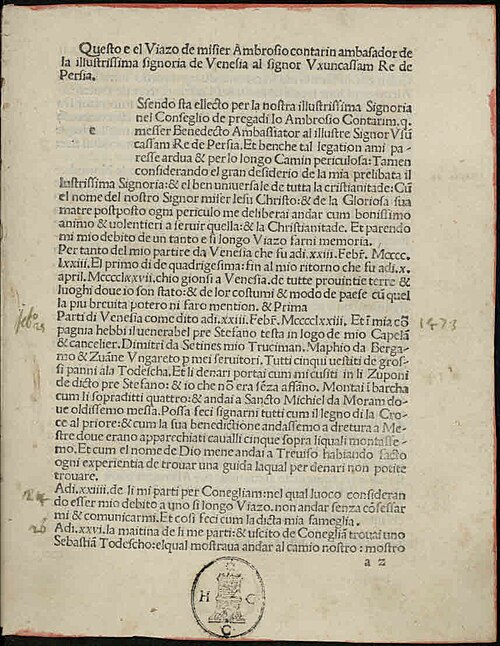 Questo e el Viazo de misier Ambrosio contarin ambasador de
la illustrissima signoria de Venesia al signor Vxuncassam Re de
Persia.
Ssendo sta ellecto per la nostra illustrissima Signoria
nel Conseglio de pregadi Io Ambrosio Contarim.q.
e
messer Benedecto Ambassiator al illustre Signor Vsũ
cassam Re de Persia. Et benche tal legation ami pa⸗
resse ardua & per lo longo Camin periculosa: Tamen
considerando el gran desiderio de la mia prelibata il
lustrissima Signoria: & el ben uniuersale de tutta la cristianitade: Cũ
el nome del nostro Signor miser Iesu Christo: & de la Gloriosa sua
matre postposto ogni periculo me deliberai andar cum bonissimo
animo & uolentieri a seruir quella: & la Christianitade. Et parendo
mi mio debito de un tanto e si longo Viazo farni memoria.
Per tanto del mio partire da Venesia che fu adi.xxiii.Febr̃. Mcccc.
lxxiii. El primo di de quadrigesima: fin al mio ritorno che fu adi.x.
april. Mcccclxxvii. chio gionsi a Venesia. de tutte prouintie terre &
luoghi doue io son stato: & de lor costumi & modo de paese cũ quel
la piu breuita potero ni faro mention. & Prima
Parti di Venesia come dito adi.xxiii.Febr̃. Mcccclxxiii. Et ĩ mia cõ
pagnia hebbi il uenerabel pre Stefano testa in logo de mio Capelã
& cancelier. Dimitri da Setines mio Truciman. Maphio da Berga⸗
mo & Zuãne Vngareto p mei seruitori. Tutti cinqui uestiti de gros⸗
si panni ala Todescha. Et li denari portai cum mi cusiti in li Zuponi
de dicto pre Stefano: & io che nõ era sẽza affãno. Montai ĩ barcha
cum li sopraditti quattro: & andai a Sancto Michiel da Moram do⸗
ue oldissemo messa. Possa feci signarni tutti cum il legno di la Cro⸗
ce al priore: & cum la sua benedictione andassemo a dretura a Me⸗
stre doue erano apparechiati cauallli cinque sopra liquali montasse⸗
mo. Et cum el nome de Dio mene andai a Treuiso habiando facto
ogni experientia de trouar una guida laqual per denari non potite
trouare.
Adi.xxiiii.de li mi parti per Conegliam: nel qual luoco consideran
do esser mio debito a uno si longo Viazo. non andar senza cõfessar
mi & comunicarmi. Et cosi feci cum la dicta mia fameglia.
Adi.xxvi.la maitina de li me parti: & uscito de Coneglia trouai uno
Sebastiã Todescho: elqual mostraua andar al camio nostro: mostro
a 2
1473
24
26
H C
C